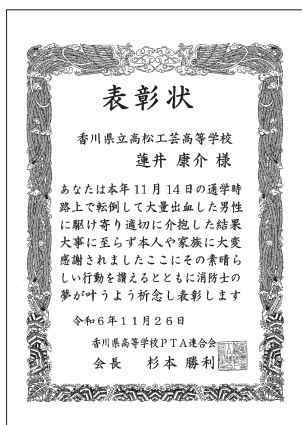 表彰状
香川県立高松工芸高等学校
蓮井 康介 様
あなたは本年11月14日の通学時
路上で転倒して大量出血した男性
に駆け寄り適切に介抱した結果
大事に至らず本人や家族に大変
感謝されましたここにその素晴ら
しい行動を讃えるとともに消防士の
夢が叶うよう祈念し表彰します
令和6年11月26日
香川県高等学校PTA連合会
会長 杉本 勝利